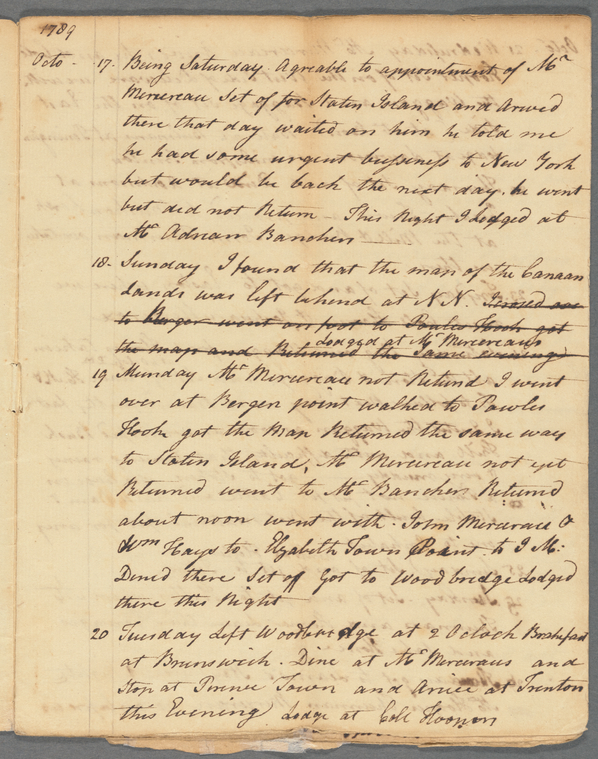 1789
Octo - 17. Being Saturday Agreable to appointment of Mr
Mercereau Set of for Staten Island and Arived
there that day waited on him he told me
he had some urgent bussiness to New York
but would be back the next day. he went
but did not Return - This Night I Lodged at
Mr Adrian Banckers
18. Sunday I found that the map of the Canaan
Lands was left behind at N N. Crosed over
to Berger went on foot to Poules Hook got
Lodged at Mr Mercereaus
the map and Returned the same evening
19 Munday Mr Mercereau not Returd I went
over at Bergen point walked to Pawles
Hook got the Map Returned the same way
to Staten Island, Mr Mercereau not yet
Returned went to Mr Banckers Returnd
about noon went with John Mercerau &
Wm Hays to Elyabeth Town Point to J M:
Dined there Set off Got to Woodbridge Lodged
there this Night
20 Tuesday Left Woodbridge at 2 Oclock Brakefast
at Brunswick. Dine at Mr Mercraus and
Stop at Prince Town and Arive at Trenton
this Evening Lodge at Coll Hoopers